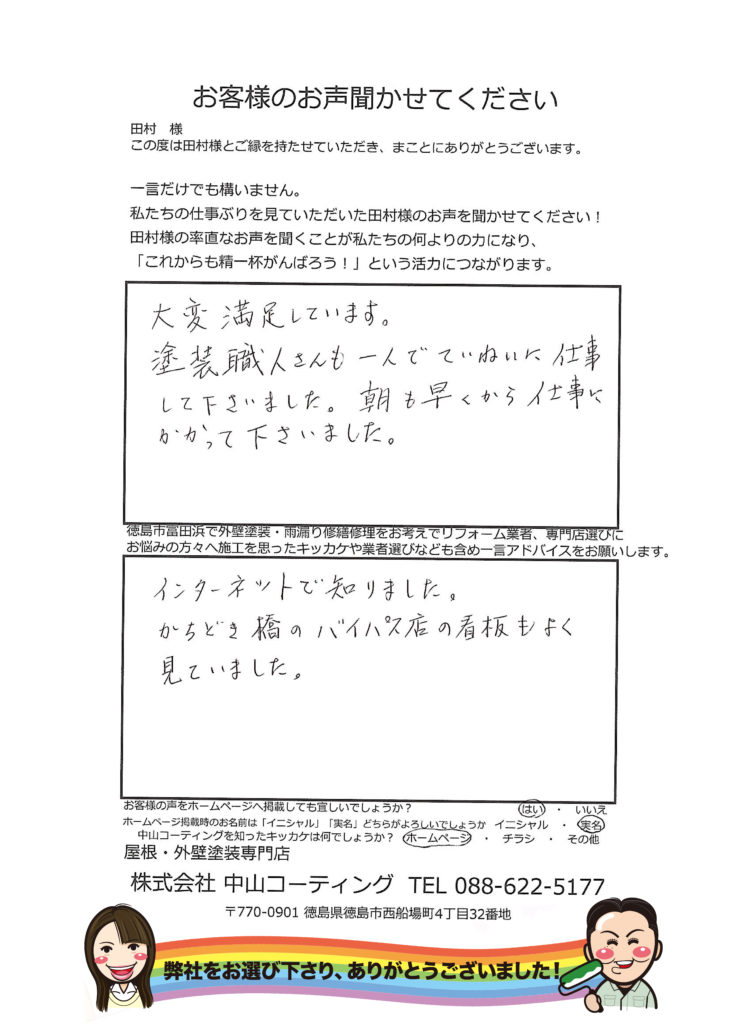 お客様のお声聞かせてください
田村　様
この度は田村様とご縁を持たせていただき、まことにありがとうございます。
一言だけでも構いません。
私たちの仕事ぶりを見ていただいた田村様のお声を聞かせてください！
田村様の率直なお声を聞くことが私たちの何よりの力になり、
「これからも精一杯がんばろう！」という活力につながります。
大変満足しています。
塗装職人さんも一人でていねいに仕事
して下さいました。朝も早くから仕事に
かかって下さいました。
徳島市富田浜で外壁塗装・雨漏り修繕修理をお考えでリフォーム業者、専門店選びに
お悩みの方々へ施工を思ったキッカケや業者選びなども含め一言アドバイスをお願いします。
インターネットで知りました。
かちどき橋のバイパス店の看板もよく
見ていました。
お客様の声をホームページへ掲載しても宜しいでしょうか？　はい　・　いいえ
ホームページ掲載時のお名前は「イニシャル」「実名」どちらがよろしいでしょうか　イニシャル　・　実名
中山コーティングを知ったキッカケは何でしょうか？　ホームページ　・　チラシ　・　その他
屋根・外壁塗装専門店
株式会社 中山コーティング　TEL 088-622-5177
〒770-0901 徳島県徳島市西船場町4丁目32番地
弊社をお選び下さり、ありがとうございました！